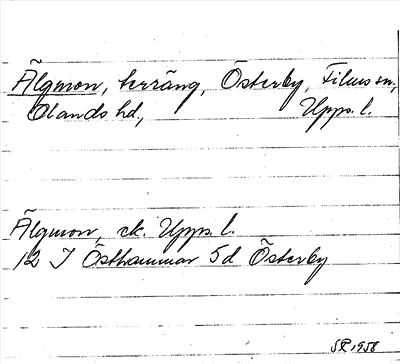 Älgmon, terräng, Österby, Films sn,
Olands hd, Upps. l.
Älgmon, ek. Upps. l.
12 I Östhammar 5d Österby
1958